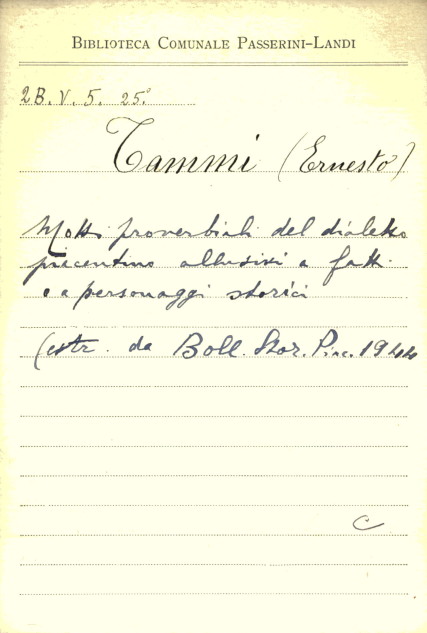 BIBLIOTECA COMUNALE PASSERINI-LANDI
2B. V. 5. 25°
Tammi (Ernesto)
Motti proverbiali del dialetto
piacentino allusivi a fatti
e a personaggi storici
(estr. da Boll. Stor. Piac. 1944
C